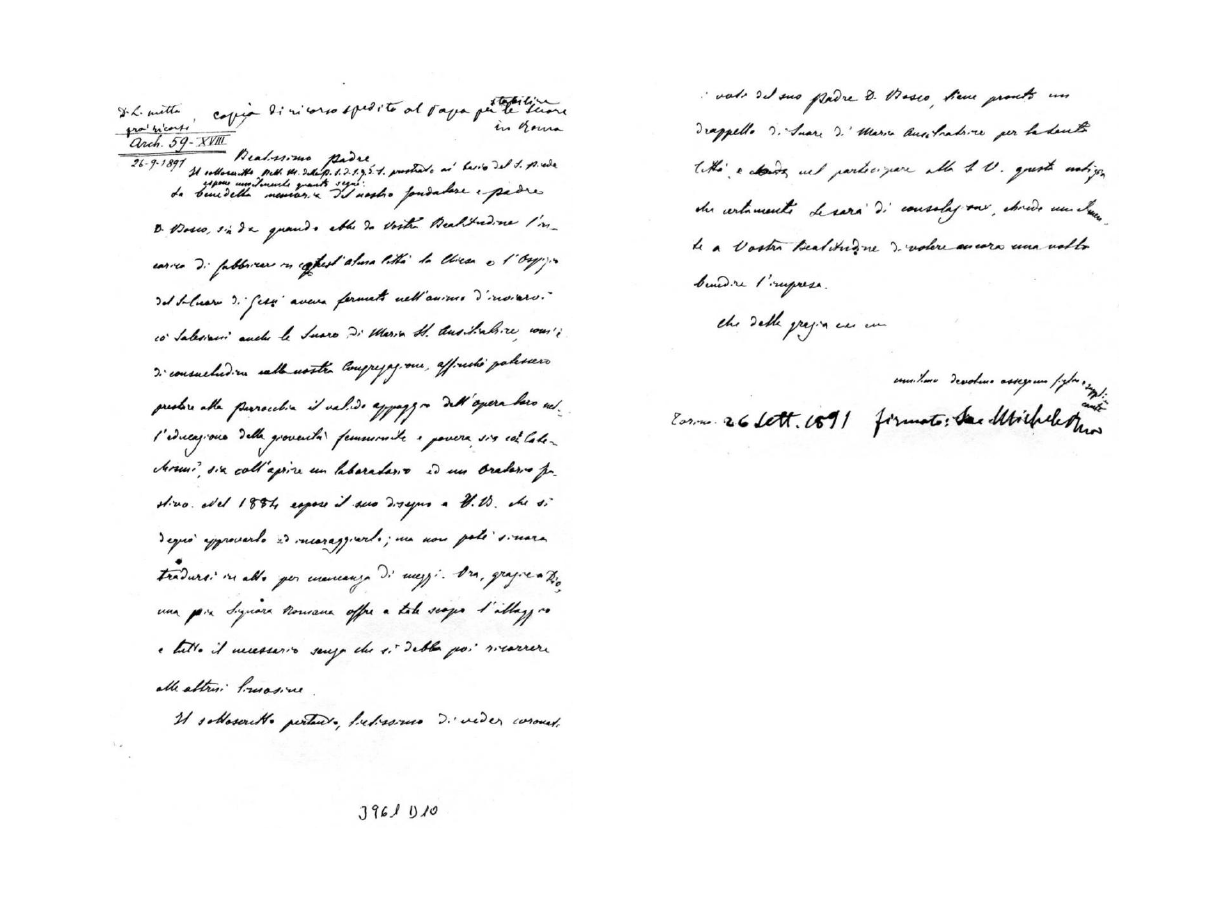 Si metta
fra i ricorsi
Arch. 59-XVIII
26-9-1891
copia di ricorso spedito al Papa per stabilire le Suore
in Roma
Beatissimo Padre
Il sottoscritto Rett. M. della prostrato al bacio del S. Piede
espone umilmente quanto segue:
La benedetta memoria del nostro fondatore e padre
D. Bosco, sin da quando ebbe da Vostra Beatitudine l'in-
carico di fabbricare in quest'alma Città la Chiesa e l'Ospizio
del S. Cuore di Gesù aveva fermato nell'animo d'inviarvi
coi Salesiani anche le Suore di Maria SS. Ausiliatrice, com'è
di consuetudine nella nostra Congregazione, affinché potessero
prestare alla Parrocchia il valido appoggio dell'opera loro nel-
l'educazione della gioventù femminile e povera, sia coi Cate-
chismi, sia coll'aprire un laboratorio ed un Oratorio fe-
stivo. Nel 1884 espose il suo disegno a V.B. che si
degnò approvarlo ed incoraggiarlo; ma non poté sinora
tradursi in atto per mancanza di mezzi. Ora, grazie a Dio,
una pia Signora Romana offre a tale scopo l'alloggio
e tutto il necessario senza che si debba poi ricorrere
alle altrui limosine.
Il sottoscritto pertanto, lietissimo di veder coronati
3961 D10
i voti del suo Padre D. Bosco, tiene pronto un
drappello di Suore di Maria Ausiliatrice per la Santa
Città, e nel partecipare alla S. V. questa notizia
che certamente Le sarà di consolazione, chiede umilmen-
te a Vostra Beatitudine di volere ancora una volta
benedire l'impresa.
Che della grazia
umilmo devotmo ossequmo figlio e suppli-
cante
Torino 26 Sett. 1891 firmato: Sac. Michele Rua